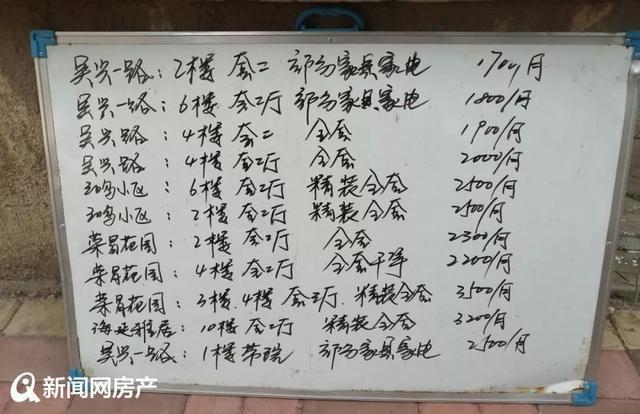 吴兴一路：2楼 套二 部分家具家电 1700/月
吴兴一路：6楼 套二厅 部分家具家电 1800/月
吴兴路：4楼 套二 全套 1900/月
吴兴路：4楼 套二厅 全套 2000/月
小区：6楼 套二厅 精装全套 2500/月
小区：2楼 套二厅 精装全套 2500/月
荣昌花园：2楼 套二厅 全套 2300/月
荣昌花园：4楼 套二厅 全套干净 2200/月
荣昌花园：3楼.4楼 套三厅.精装全套 3500/月
海延雅居：10楼 套二厅 精装全套 3200/月
吴兴一路：1楼带院 部分家具家电 2500/月
新闻网房产